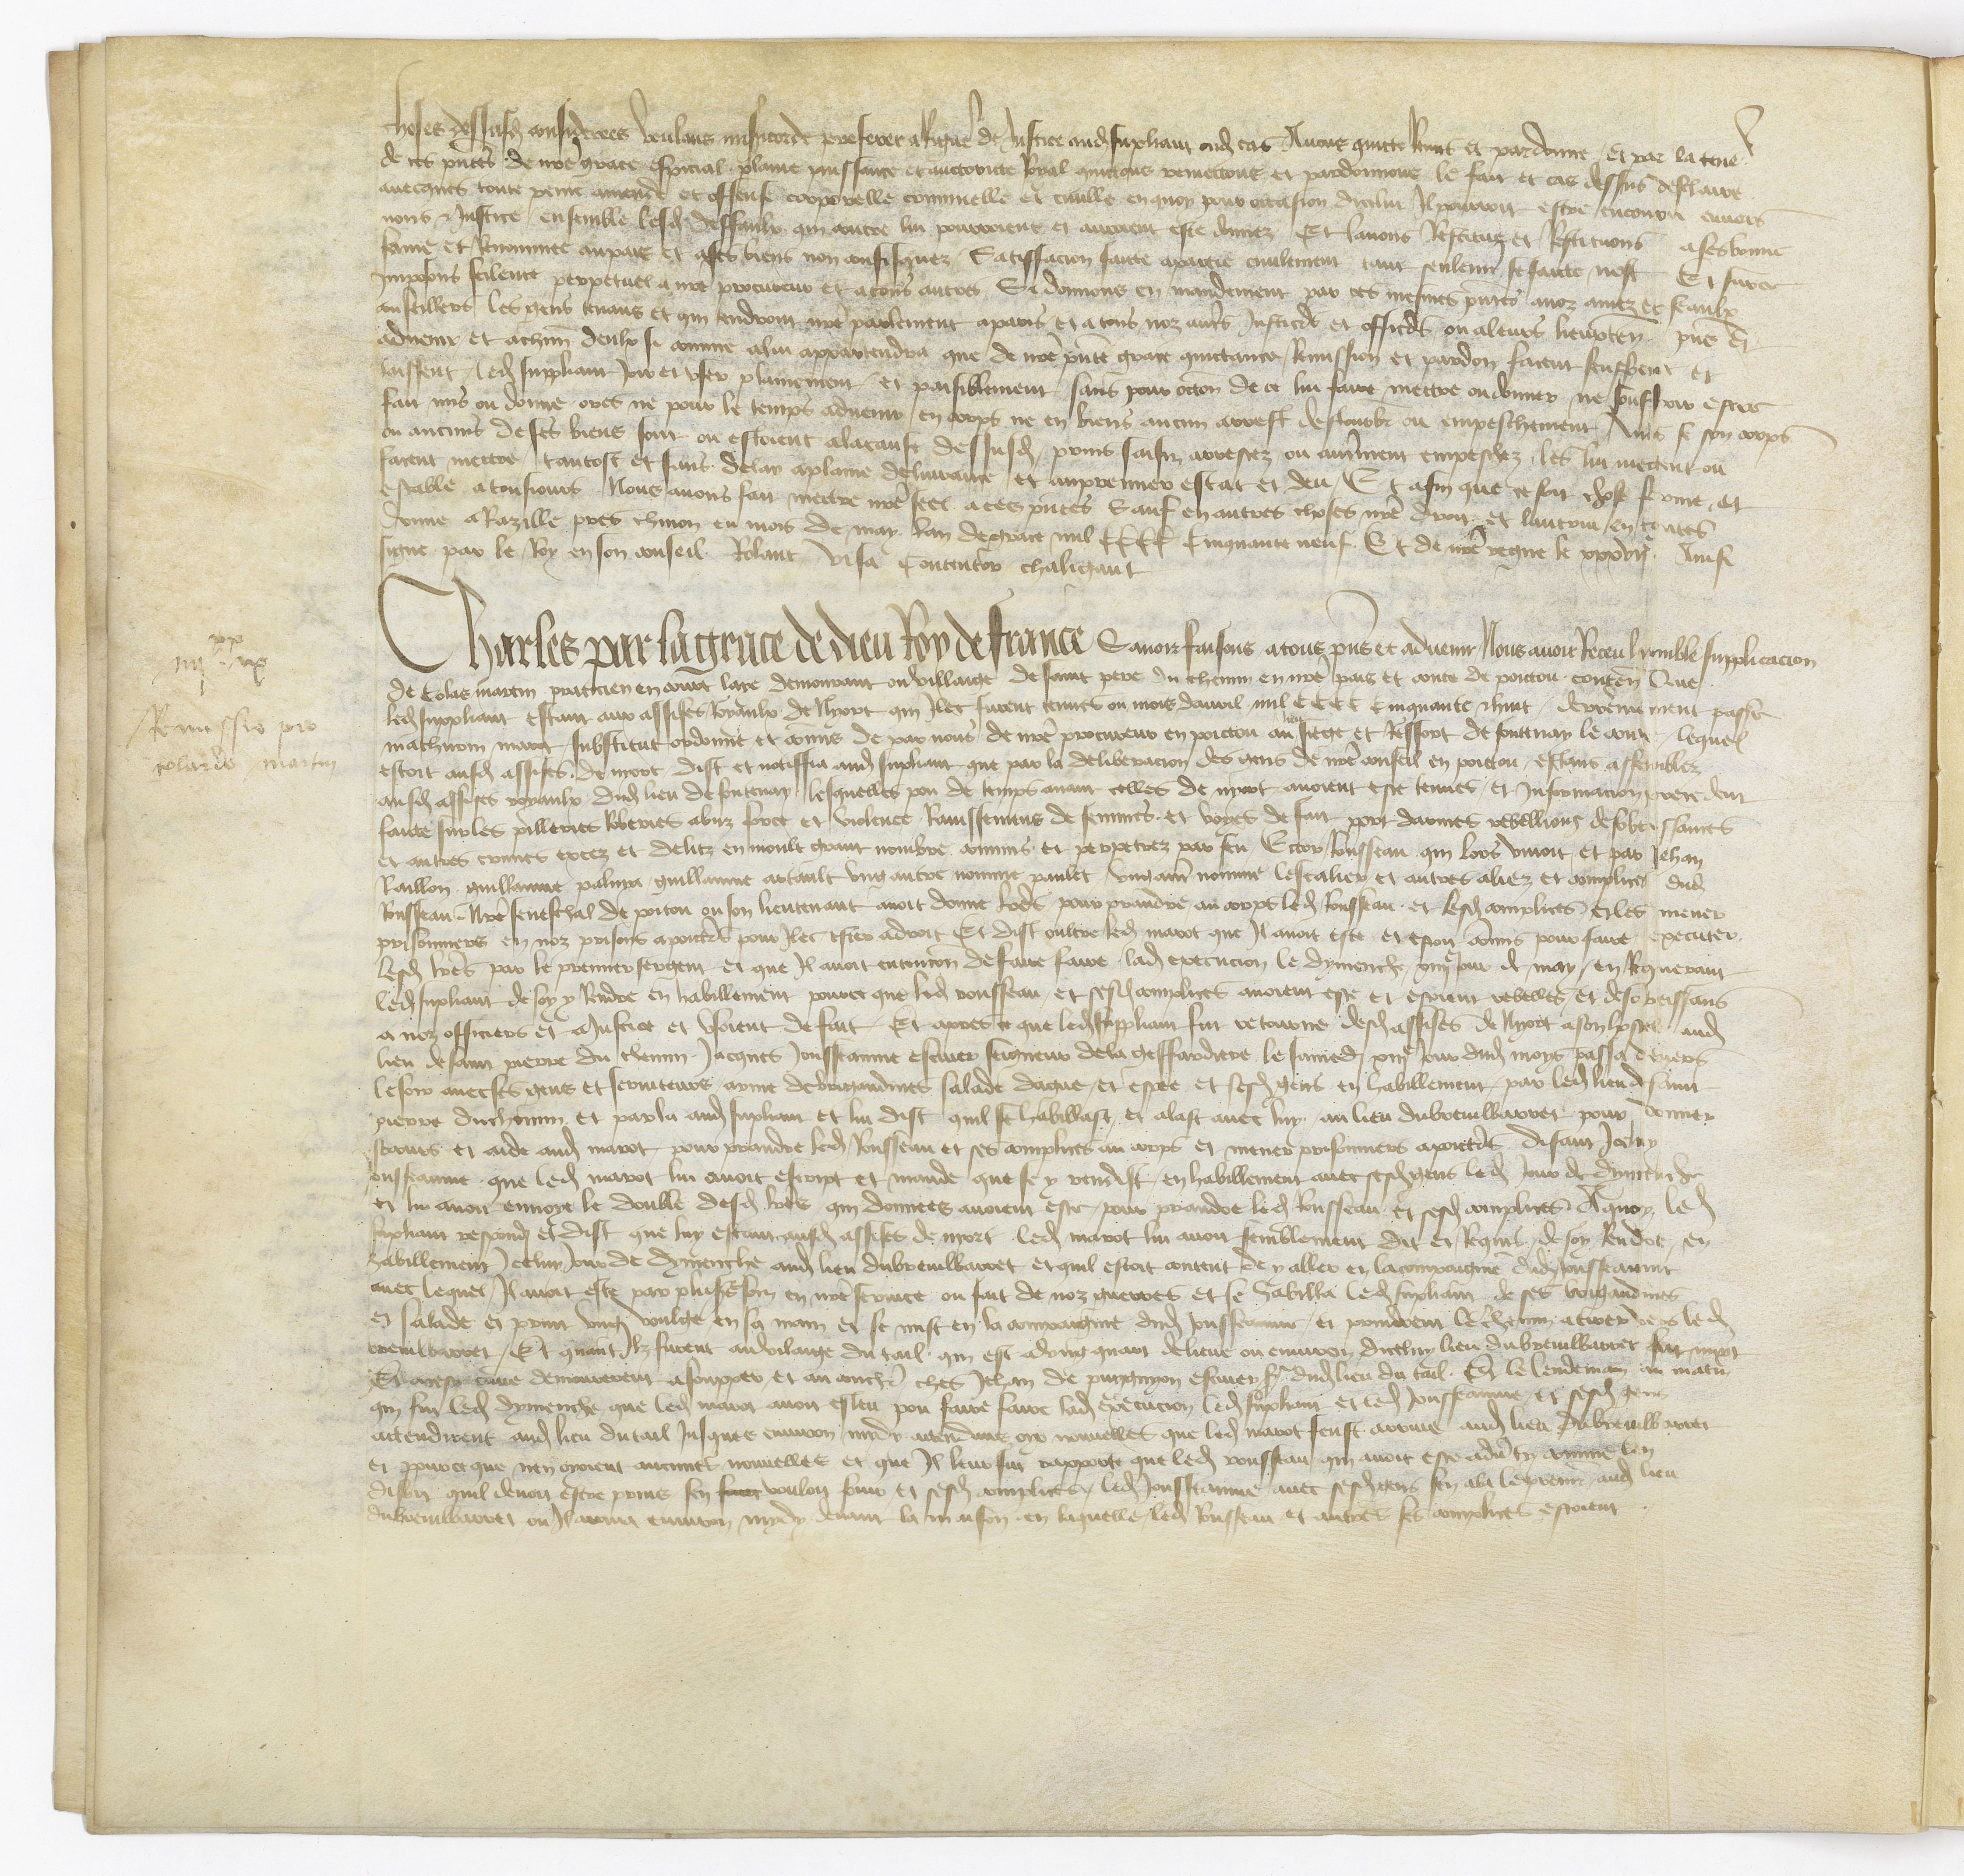 choses dessusd considerees voulans misericorde preferer a Rigueur de Justice aud supliant oud cas Avons quicte Remis et pardonne Et par la teneur
de ces pntes de nre grace espicial plaine puissance et auctorite Royal quictons remectons et pardonnons le fait et cas dessus desclaire
avecques toute peine amende et offense corporelle criminelle et civille en quoy pour occasion dicelui Il pourroit estre encouru envers
nous & Justice ensemble lesd deffaulx qui contre lui pourroient et auroient este donnez Et lavons Restitue et Restituons a ses bonne
fame et Renommee au pais et a ses biens non confisquez Satisfacion faicte a partie civilement tant seulemt se faicte nest Et surce
Imposons scilence perpetuel a nre procureur et a tous autres Si donnons en mandement par ces mesmes pntes a noz amez et feaulx
conseillers les gens tenans et qui tendront nre parlement a paris et a tous noz autres Justiciers et officiers ou a leurs lieuxten pns et
advenir et a chun deulx si comme a lui appartendra que de nre pnte grace quictance Remission et pardon facent seuffrent et
laissent led suppliant Joir et user plainement et paisiblement sans pour occon de ce lui faire mectre ou donner ne souffrir estre
fait mis ou donne ores ne pour le temps advenir en corps ne en biens aucun arrest destourbr ou empeschement Ains se son corps
ou aucuns de ses biens sont ou estoient a la cause dessusd prins saisiz arrestez ou autrement empeschez les lui mectent ou
facent mectre tantost et sans delay a plaine delivrance et au premier estat et deu Et afin que ce soit chose ferme et
estable a tousjours Nous avons fait mectre nre seel a ces pntes Sauf en autres choses nre droit et lautruy en toutes
Donne a Razille pres chinon ou mois de may lan de grace mil CCCC Cinquante neuf Et de nre regne le xxxviie Ainsi
signe par le Roy en son conseil Rolant Visa Contentor Chaligaut
iiiixx ix
Remissio pro
colardo martin
Charles par la grace de dieu Roy de france Savoir faisons a tous pns et advenir Nous avoir Receu lumble supplicacion
de Colas martin praticien en court laye demourant ou villaige de saint pere du chemin en nre pais et conte de poictou conten Que
led suppliant estant aux assises Royaulx de Nyort qui Ilec furent tenues ou mois davril mil CCCC Cinquante & huit derrenierement passe
mathurin marot substitut ordonne et comis de par nous de nre procureur en poictou au siege et Ressort de fontenay le conte lequel
estoit ausd assises de nyort dist et notiffia aud supliant que par la deliberacion des gens de nre conseil en poictou estans assemblez
ausd assises royaulx dud lieu de fontenay lesquelles pou de temps avant celles de nyort avoient este tenues et Informacion precedent
faicte sur les pilleries Roberies abuz force et violence Ravissemens de femmes et voyes de fait port darmes rebellions desobeissances
et autres crimes excez et delitz en moult grant nombre commis et perpetrez par feu Ector Rousseau qui lors vivoit et par Jehan
Raillon guillaume palupa guillaume artault ung autre nomme paulet ung autre nomme lescalier et autres aliez et complices dud
Rousseau Nre seneschal de poitou ou son lieutenant avoit donne lres pour prandre au corps led Rousseau et lesd complices et les mener
prisonniers en noz prisons a poictrs pour Ilec ester a droit Et dist oultre led marot que Il avoit este et estoit comis pour faire executer
lesd lres par le premier sergent et que Il avoit entencion de faire faire lad execucion le dymenche xiiiie jour de may en Requerant
led supliant de soy y Rendre en habillement pource que led rousseau et sesd complices avoient este et estoient rebelles et desobeissans
a noz officiers et a Justice et usoient de fait Et apres ce que led suppliant fut retourne desd assises de Nyort a son hostel aud
lieu de saint pierre du chemin Jacques Jousseaume escuier seigneur de la geffardiere le samedi xiiie Jour dud moys passa devers
le soir avec ses gens et serviteurs arme de brigandines salade dague et espee et sesd gens en habillement par led lieu de saint
pierre du chemin et parla aud supliant et lui dist quil se habillast et alast avec luy au lieu du breuilbarret pour donner
secours et aide aud marot pour prandre led Rousseau et ses complices au corps et mener prisonniers a poictrs disant Icelluy
Jousseaume que led marot lui avoit escript et mande que se y rendist en habillement avec sesd gens led Jour de dymenche
et lui avoit envoye le double desd lres qui donnees avoient este pour prandre led Rousseau et sesd complices A quoy led
supliant respondi et dist que luy estant ausd assises de nyort led marot lui avoit semblement dit et Requis de soy Rendre en
habillement Icelluy Jour de dymenche aud lieu du breuilbarret et quil estoit content de y aller en la compaignie dud Jousseaume
avec lequel Il avoit este par plusrs foiz en nre service ou fait de noz guerres et se habilla led supliant de ses brigandines
et salade et print ung voulge en sa main et se mist en la compaignie dud Jousseaume et prindrent le chemin a tirer vers led
breuilbarret Et quant Ilz furent au vilaige du tail qui est a ung quart de lieue ou environ dicelluy lieu du breuilbarret
demourerent a soupper et au coucher ches Jehan de puyguyon escuier sr dud lieu du tail Et le lendemain au matin
qui fut led dymenche que led marot avoit esleu pou faire faire lad execucion led supliant et led Jousseaume et sesd gens
actendirent aud lieu du tail Jusques environ mydi actendans oyr nouvelles que led marot feust arrive aud lieu du breuilbarret
et pource que nen oyoient aucunes nouvelles et que Il leur fut rapporte que led rousseau qui avoit este adverty comme len
disoit quil devoit estre prins sen vouloit fouir et sesd complices led Jousseaume avec sesd gens sen ala le premier aud lieu
du breuilbarret ou Il arriva environ mydy devant la maison en laquelle led Rousseau et autres ses complices estoient